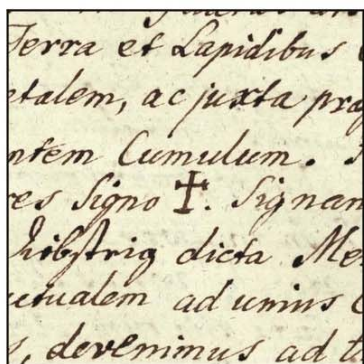 Terra et Lapidibus
etalem, ac juxta pro
ntem Cumulum.
res Signo ✝. Signan
dicta Me
utualem ad unius
, devenimus ad